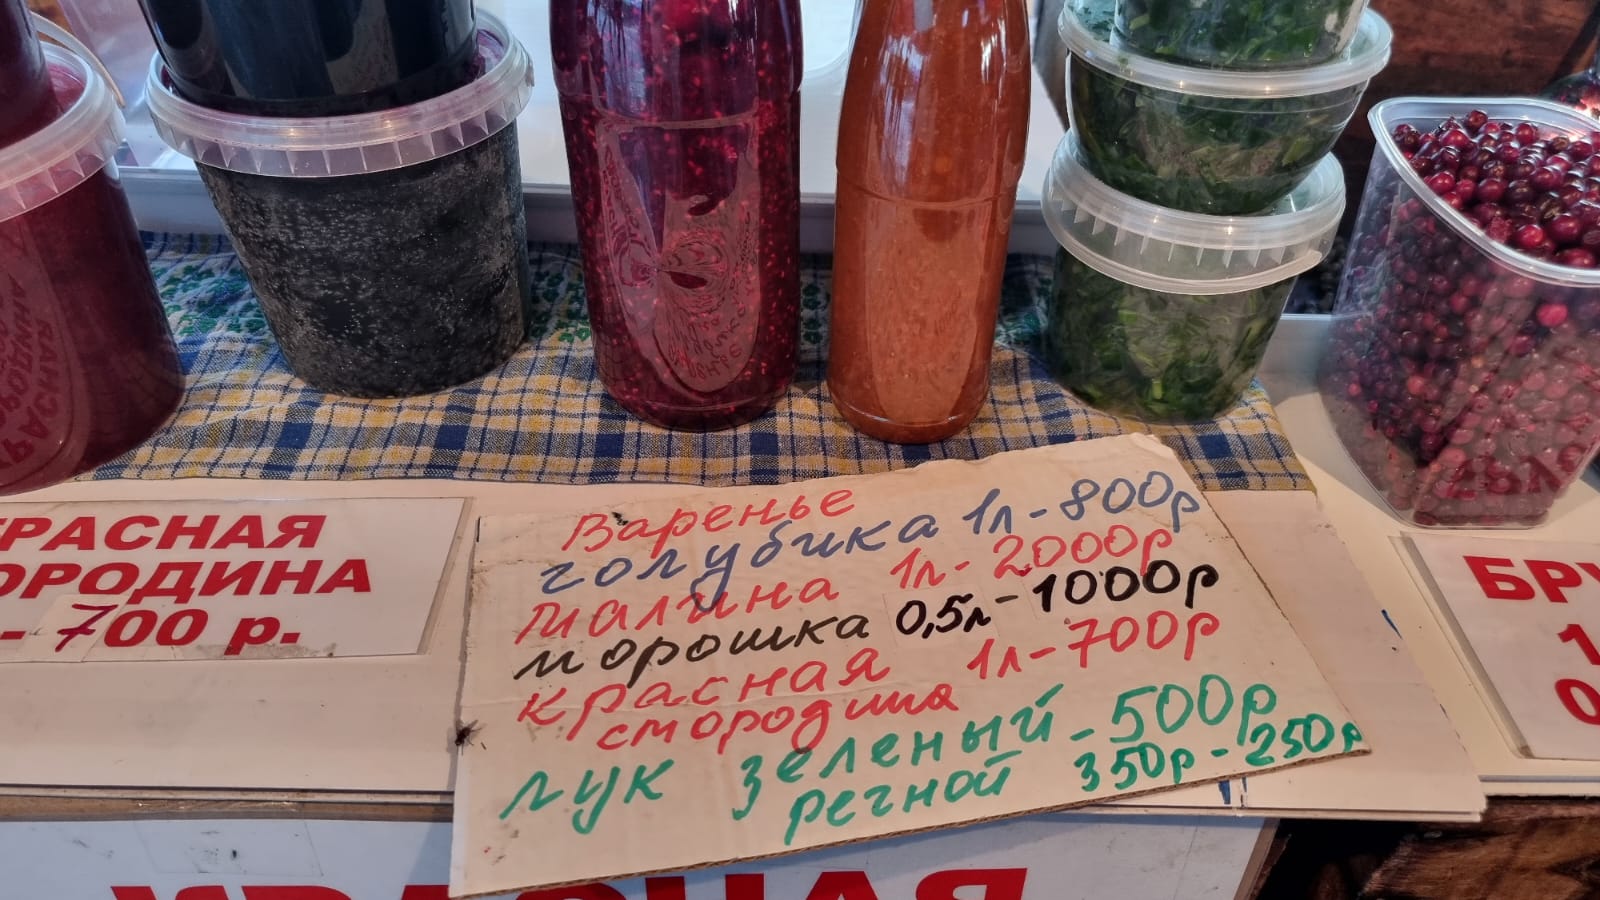 КРАСНАЯ
ОРОДИНА
- 700 р.
Варенье
голубика 1л-800р
малина 1л-2000р
морошка 0,5л-1000р
красная 1л-700р
смородина
лук зеленый-500р
речной 350р-250р
БРУ
1
0